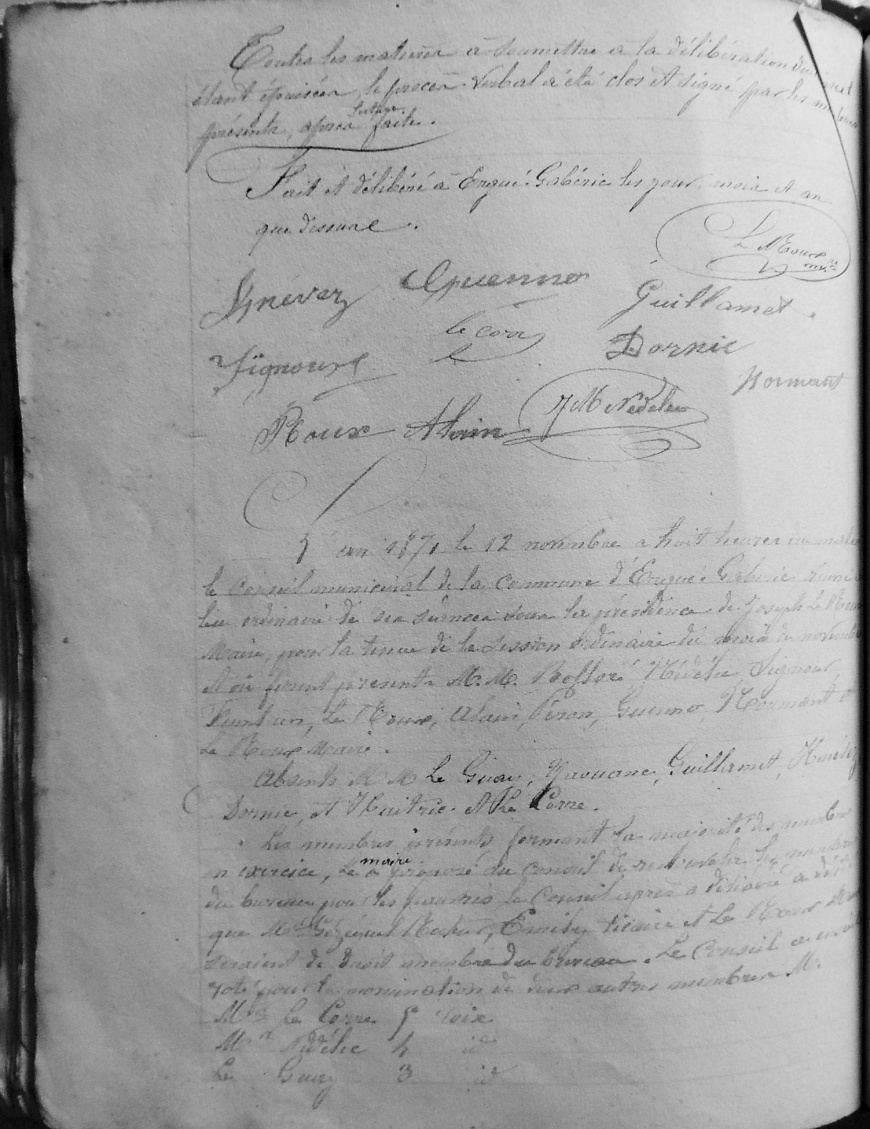 Toutes les matières à soumettre à la délibération du conseil
étant épuisées, le procès-verbal a été clos et signé par les membres
présents, après lecture faite.
Fait et délibéré à Ergué-Gabéric les jour, mois et an
que dessus.
Le Roux
maire
Guenno
Guillamet.
le corr
Dornic
Signour
Normant
Roux Alain JM Nédélec
L'an 1871 le 12 novembre à huit heures du matin
le conseil municipal de la commune d'Ergué-Gabéric réuni
lieu ordinaire de ses séances sous la présidence de Joseph Le Roux
Maire, pour la tenue de la session ordinaire du mois de novembre
et où furent présents M.M. Bolloré Nédélec, Signour,
Le Roux, Alain, Péron, Guenno, Normant et
Le Roux Maire.
Absents M.M. Le Guay, Guillamet,
Dornic, et Huitric. et Le Corre.
Les membres présents formant la majorité des membres
en exercice, Le maire a proposé au conseil de les membres
du bureau pour les pauvres le conseil après a délibéré a
que Mrs Recteur, vicaire et Le Roux
seraient de droit membre du bureau. Le Conseil a
voté pour la nomination de deux autres membres M.
Mrs le Corre 5 voix
Mr Nédélec 4 id
Le Guay 3 id